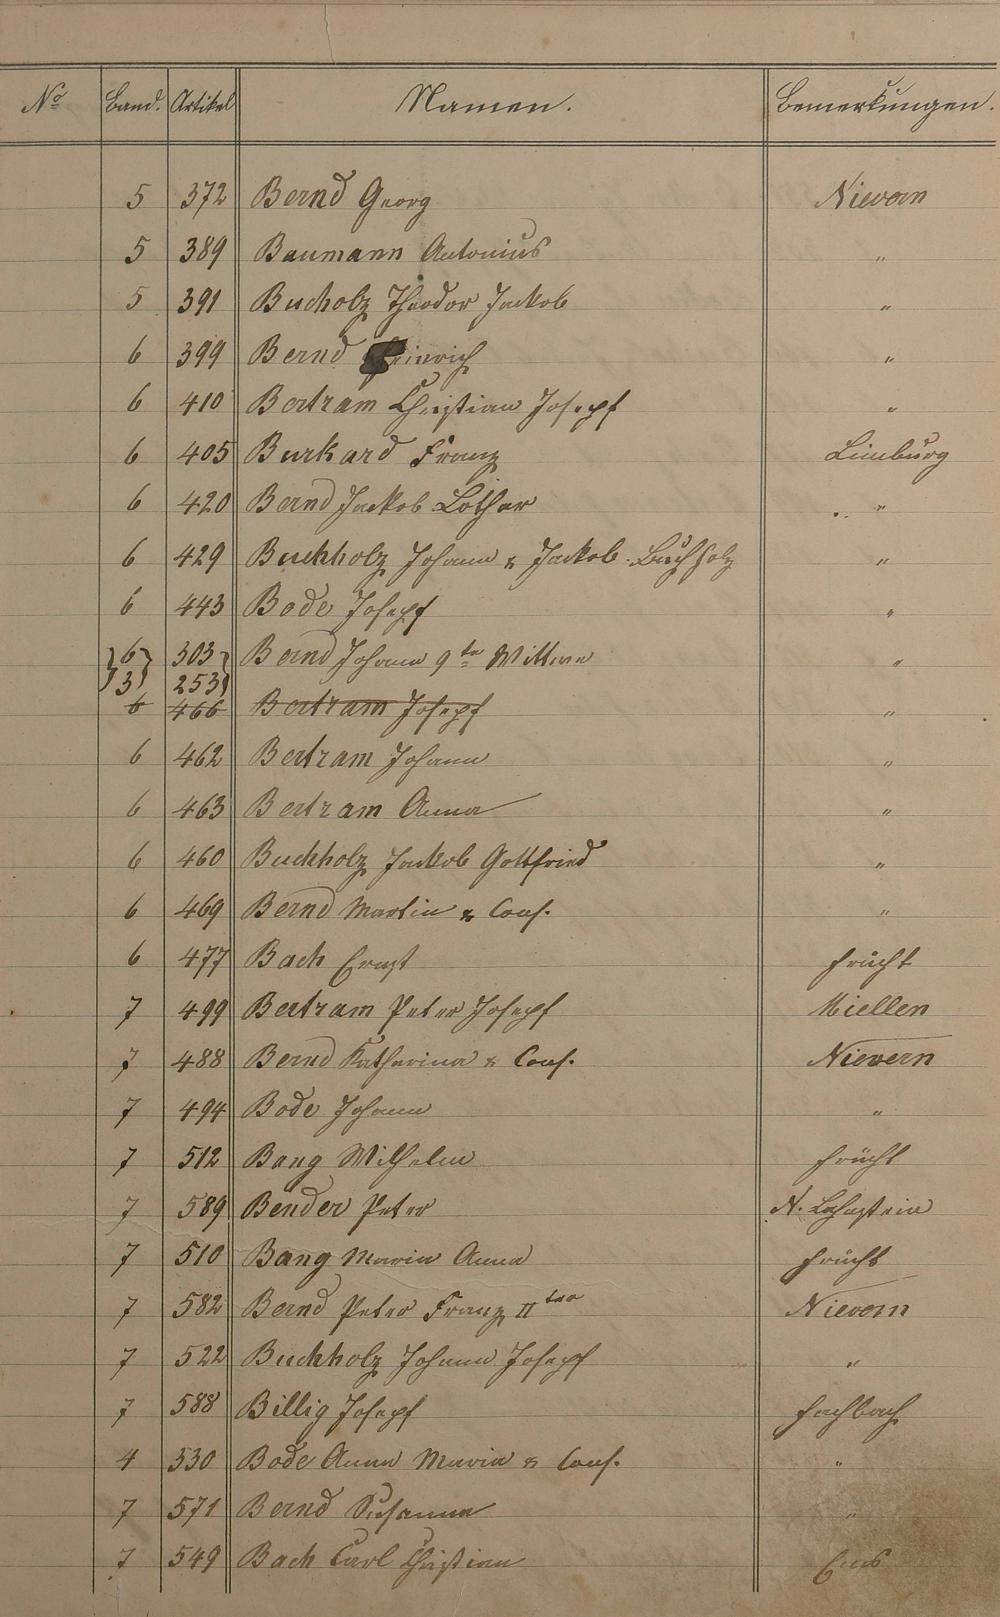 No Band. Artikel Namen. Bemerkungen.
5 372 Bernd Georg Nievern
5 389 Baumann Antonius "
5 391 Bucholz Theodor Jackob "
6 399 Bernd Heinrich "
6 410 Bertram Christian Joseph "
6 405 Burkard Franz Limburg
6 420 Bernd Jackob Lothar "
6 429 Buchholz Johann & Jackob Buchholz "
6 443 Bode Joseph "
6 303 Bernd Johann 9te Wittwe "
3 253
6 466 Bertram Joseph "
6 462 Bertram Johann "
6 463 Bertram Anna "
6 460 Buchholz Jackob Gottfried "
6 469 Bernd Martin & Cons. "
6 477 Bach Ernst Frücht
7 499 Bertram Peter Joseph Miellen
7 488 Bernd Katharina & Cons. Nievern
7 494 Bode Johann "
7 512 Bang Wilhelm Frücht
7 589 Bender Peter N. Lahnstein
7 510 Bang Maria Anna Frücht
7 582 Bernd Peter Franz IIter Nievern
7 522 Buchholz Johann Joseph "
7 588 Billig Joseph Fachbach
4 530 Bode Anna Maria & Cons. "
7 571 Bernd Susanna "
7 549 Bach Carl Christian Ems